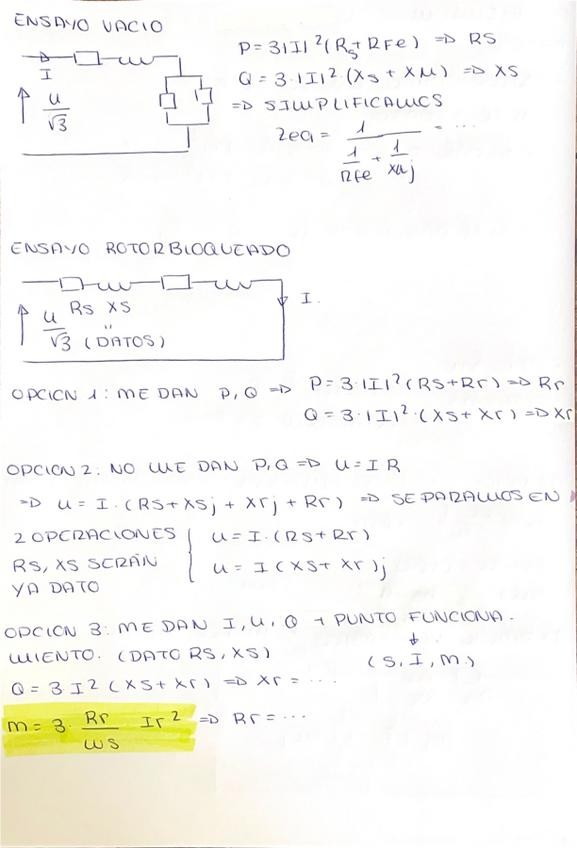 ENSAYO VACIO
I
U
√3
P = 3|I|²(Rs + RFe) => RS
Q = 3·|I|²·(Xs + Xμ) => XS
=> SIMPLIFICAMOS
Zeq = 1 / (1/RFe + 1/Xμj) = ...
ENSAYO ROTOR BLOQUEADO
I.
RS XS
U
√3 (DATOS)
OPCION 1: ME DAN P, Q => P = 3·|I|²(RS+Rr) => Rr
Q = 3·|I|²·(XS + Xr) => Xr
OPCION 2: NO ME DAN P, Q => U = I R
=> U = I·(RS + XSj + Xrj + Rr) => SEPARAMOS EN
2 OPERACIONES U = I·(RS + Rr)
RS, XS SERÁN U = I(XS + Xr)j
YA DATO
OPCION 3: ME DAN I, U, Q + PUNTO FUNCIONA.
MIENTO. (DATO RS, XS) (S, I, M)
Q = 3 I² (XS + Xr) => Xr = ....
M = 3· Rr/ωs Ir² => Rr = ...